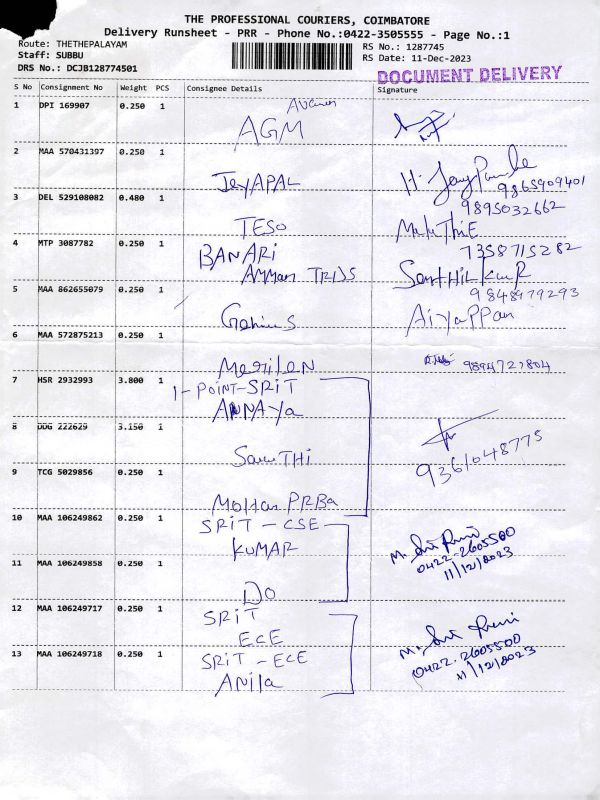 THE PROFESSIONAL COURIERS, COIMBATORE
Delivery Runsheet - PRR - Phone No.:0422-3505555 - Page No.:1
Route: THETHEPALAYAM
RS No.: 1287745
Staff: SUBBU
RS Date: 11-Dec-2023
DRS No.: DCJB128774501
DOCUMENT DELIVERY
S No Consignment No Weight PCS Consignee Details Signature
1 DPI 169907 0.250 1
AGM
2 MAA 570431397 0.250 1
JeyAPAL
9865909401
3 DEL 529108082 0.480 1
9895032662
TESO
4 MTP 3087782 0.250 1
BANARi
7358715282
AMMan
SenTHil
5 MAA 862655079 0.250 1
9848979293
AiyaPPan
6 MAA 572875213 0.250 1
9894727804
7 HSR 2932993 3.800 1
1-POINT-SRiT
ANNAYa
8 DDG 222629 3.150 1
9361048775
9 TCG 5029856 0.250 1
Mohan
10 MAA 106249862 0.250 1
SRiT - CSE
KUMAR
0422-2605500
11/12/2023
11 MAA 106249858 0.250 1
DO
12 MAA 106249717 0.250 1
SRiT
ECE
0422.2605500
11/12/2023
13 MAA 106249718 0.250 1
SRiT - ECE
ANila